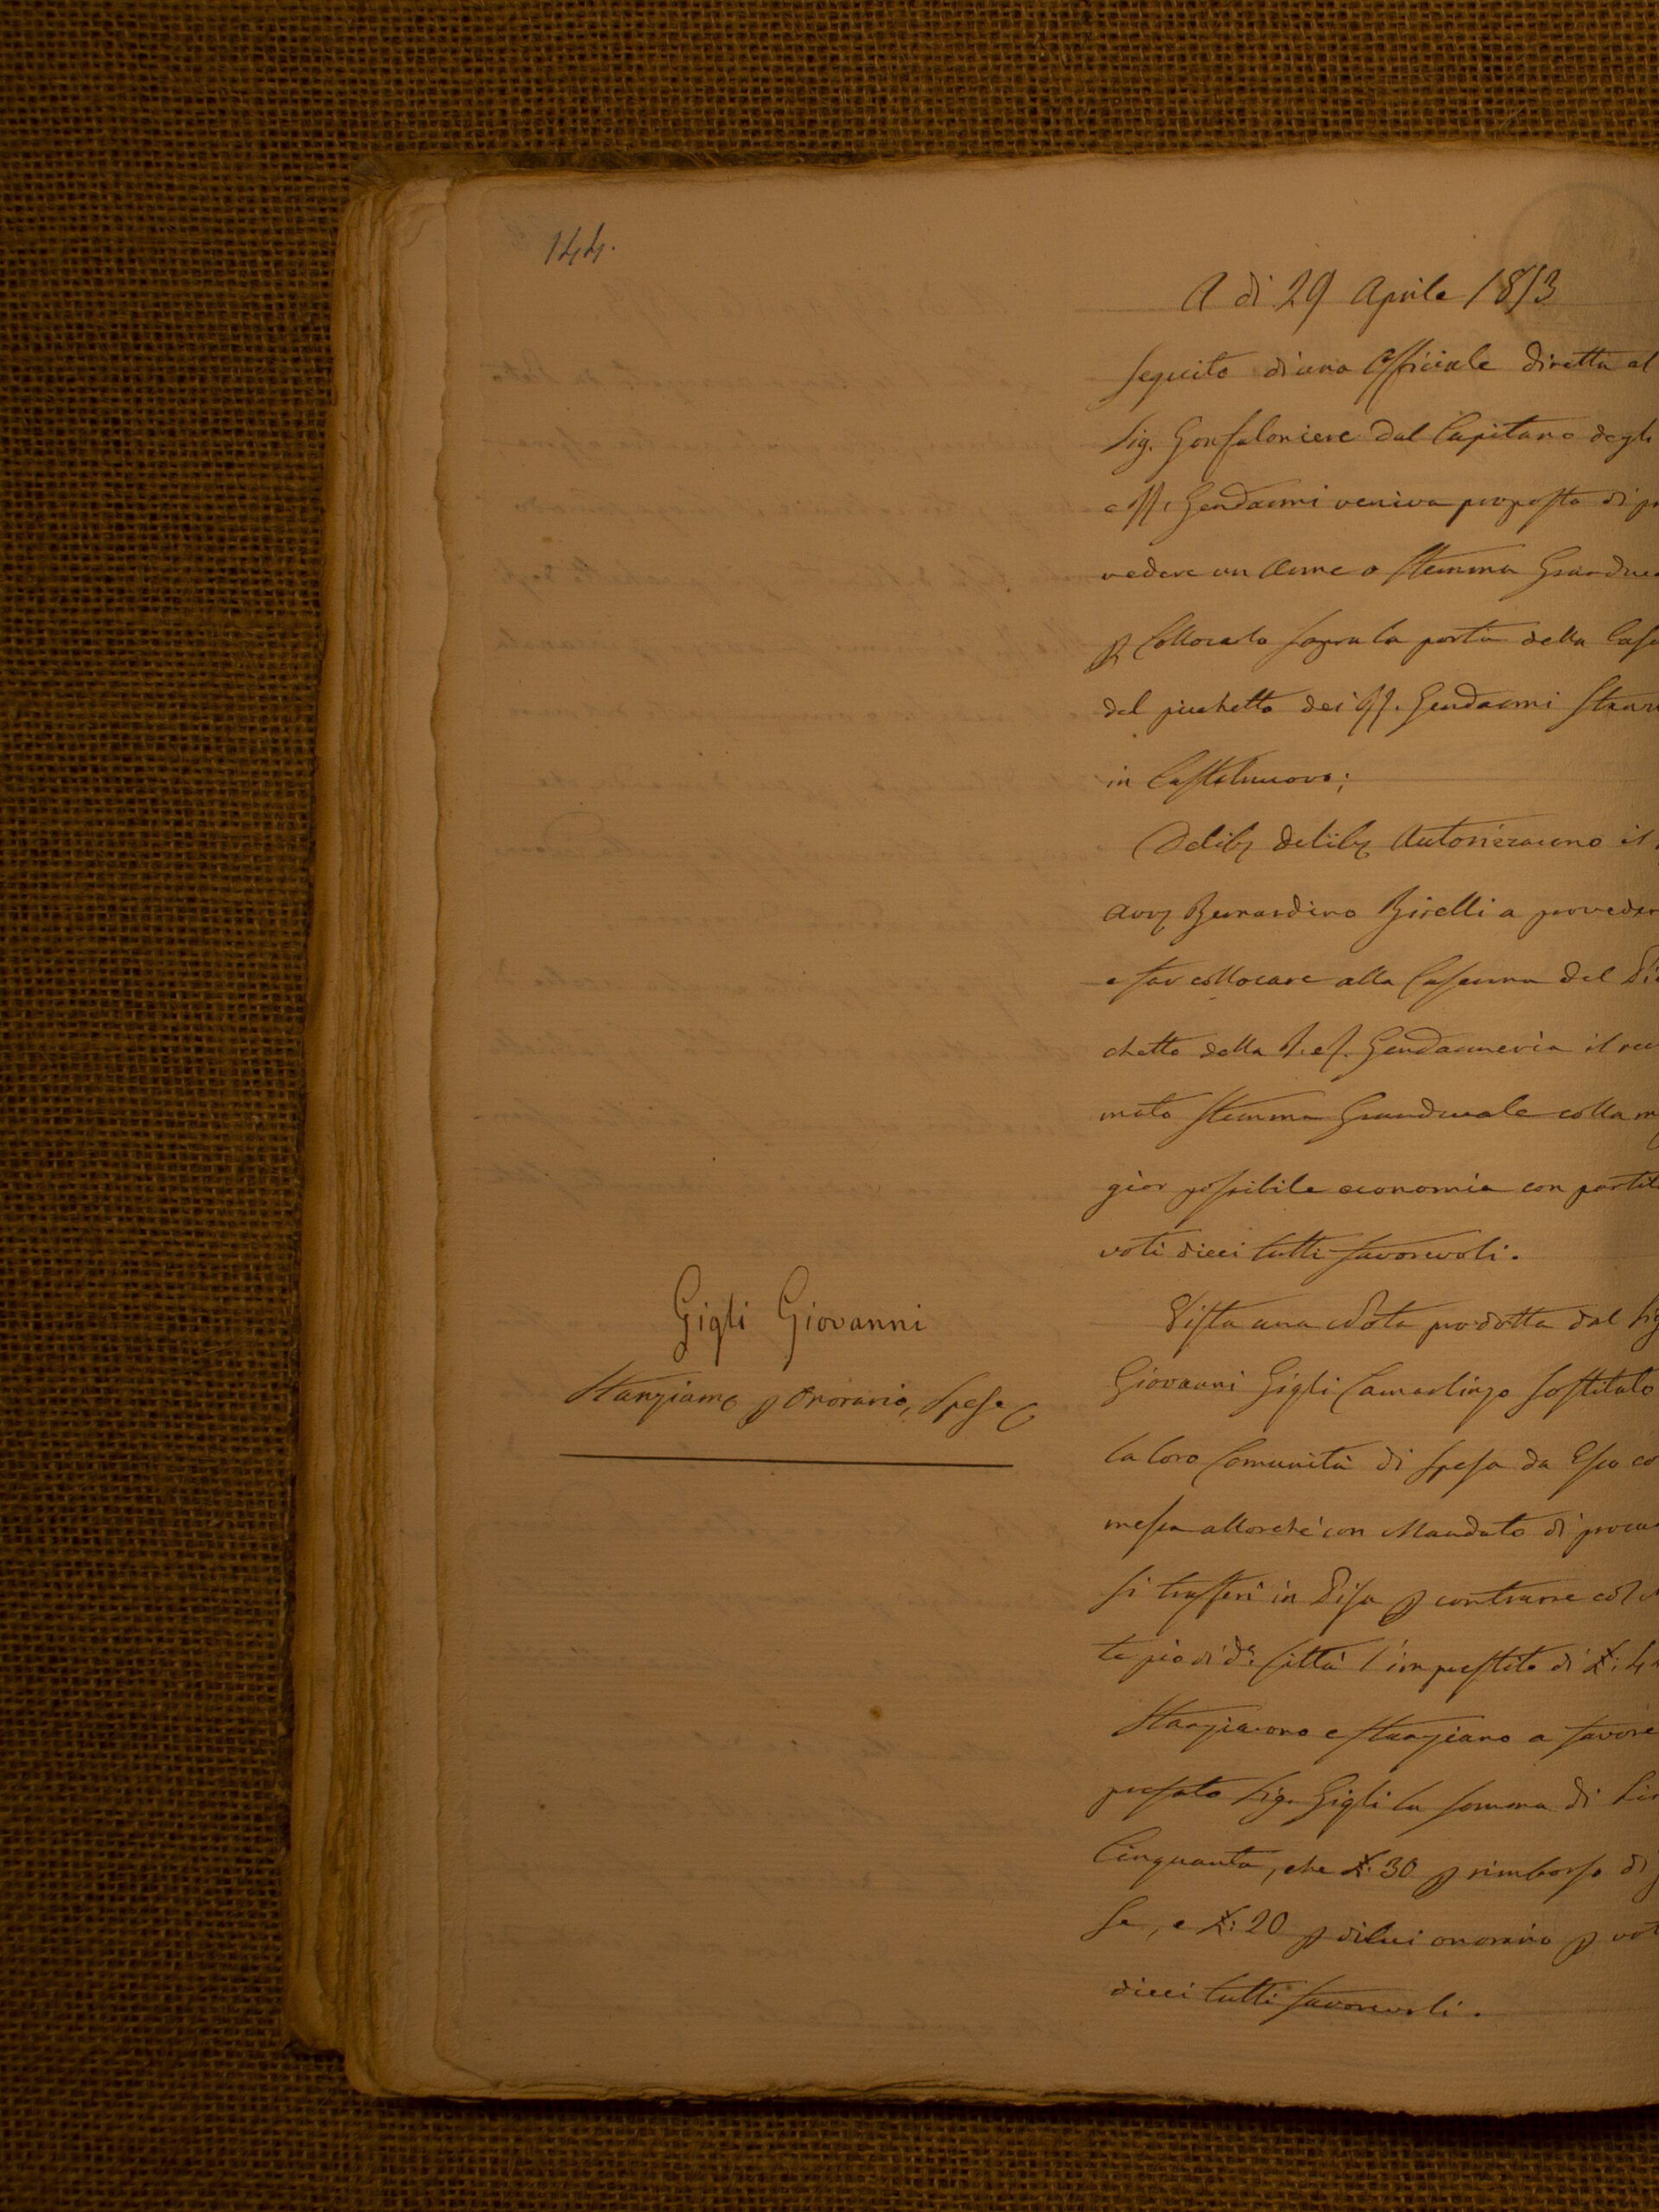 144.
A dì 29 Aprile 1853
seguito di una Officiale diretta al
Sig. Gonfaloniere dal Capitano degli
Gendarmi veniva proposto di pr
vedere un Arme o Stemma Granduca
p collocarlo sopra la porta della Case
del picchetto dei II. Gendarmi Stanz
in Castelnuovo;
Delib. delib. Autorizzarono il
Bernardino Birelli a proveder
e far collocare alla Caserma del Pic
chetto della I. e R. Gendarmeria il
mato Stemma Granducale colla mag
gior possibile economia con partit
voti dieci tutti favorevoli.
Gigli Giovanni
Stanziam. p Onorario, Spese
Vista una Nota prodotta dal Sig
Giovanni Gigli Camarlingo sostituto
la loro Comunità di spesa da Esso co
messa allorchè con Mandato di procu
si trasferì in Pisa p contrarre col
te pio di da. Città l'imprestito di £: 4
Stanziarono e stanziano a favore
prefato Sig. Gigli la somma di Lir
Cinquanta, che £: 30 p rimborso di
se, e £: 20 p di lui onorario p vot
dieci tutti favorevoli.